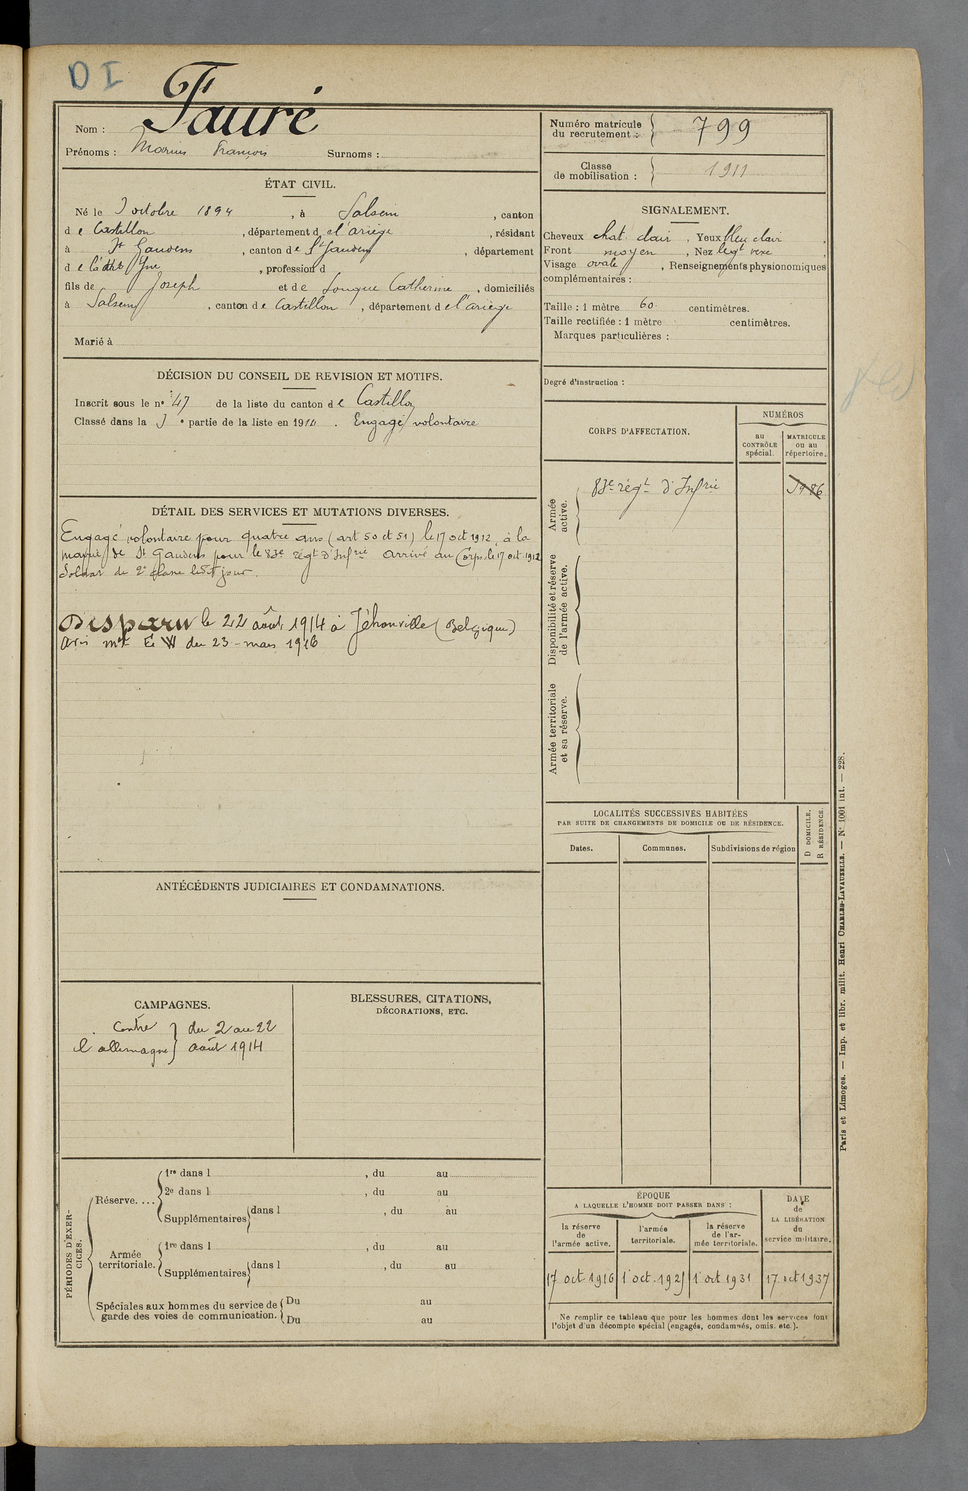 D I
Fauré
Nom :
Prénoms : Marius François Surnoms :
ÉTAT CIVIL.
Né le 3 octobre 1894 , à Salsein , canton
de Castillon , département de l'ariège , résidant
à St Gaudens , canton de St Gaudens , département
de la hte Gne , profession d
fils de Joseph et de Longue Catherine , domiciliés
à Salsein , canton de Castillon , département de l'ariège
Marié à
DÉCISION DU CONSEIL DE REVISION ET MOTIFS.
Inscrit sous le no 47 de la liste du canton de Castillon
Classé dans la e partie de la liste en 191 . Engagé volontaire
DÉTAIL DES SERVICES ET MUTATIONS DIVERSES.
Engagé volontaire pour quatre ans (art 50 et 51) le 17 oct 1912, à la
mairie de St Gaudens pour le 83e régt d'Infrie arrivé au Corps le 17 oct 1912
Soldat de 2e classe jour.
Disparu le 22 août 1914 à Jéhonville (Belgique)
avis du 23 mars 1916
ANTÉCÉDENTS JUDICIAIRES ET CONDAMNATIONS.
CAMPAGNES.
Contre } du 2 au 22
l'allemagne } août 1914
BLESSURES, CITATIONS,
DÉCORATIONS, ETC.
PÉRIODES D'EXERCICES.
Réserve....
1re dans l , du au
2e dans l , du au
Supplémentaires dans l , du au
Armée territoriale.
1re dans l , du au
Supplémentaires dans l , du au
Spéciales aux hommes du service de garde des voies de communication.
Du au
Du au
Numéro matricule du recrutement : 799
Classe de mobilisation : 1911
SIGNALEMENT.
Cheveux chat. clair , Yeux bleu clair ,
Front moyen , Nez legt vexe ,
Visage ovale , Renseignements physionomiques
complémentaires :
Taille : 1 mètre 60 centimètres.
Taille rectifiée : 1 mètre centimètres.
Marques particulières :
Degré d'instruction :
CORPS D'AFFECTATION.
NUMÉROS
au CONTRÔLE spécial.
MATRICULE ou au répertoire.
Armée active.
83e régt d'Infrie
Disponibilité et réserve de l'armée active.
Armée territoriale et sa réserve.
LOCALITÉS SUCCESSIVES HABITÉES
PAR SUITE DE CHANGEMENTS DE DOMICILE OU DE RÉSIDENCE.
Dates. Communes. Subdivisions de région
D DOMICILE.
R RÉSIDENCE.
ÉPOQUE
A LAQUELLE L'HOMME DOIT PASSER DANS :
la réserve de l'armée active.
l'armée territoriale.
la réserve de l'armée territoriale.
DATE de LA LIBÉRATION du service militaire.
17 oct 1916 1 oct. 1925 1 oct 1931 17 oct 1937
Ne remplir ce tableau que pour les hommes dont les services font
l'objet d'un décompte spécial (engagés, condamnés, omis, etc.).
Paris et Limoges. — Imp. et libr. milit. Henri CHARLES-LAVAUZELLE. — No 1001 int. — 228.